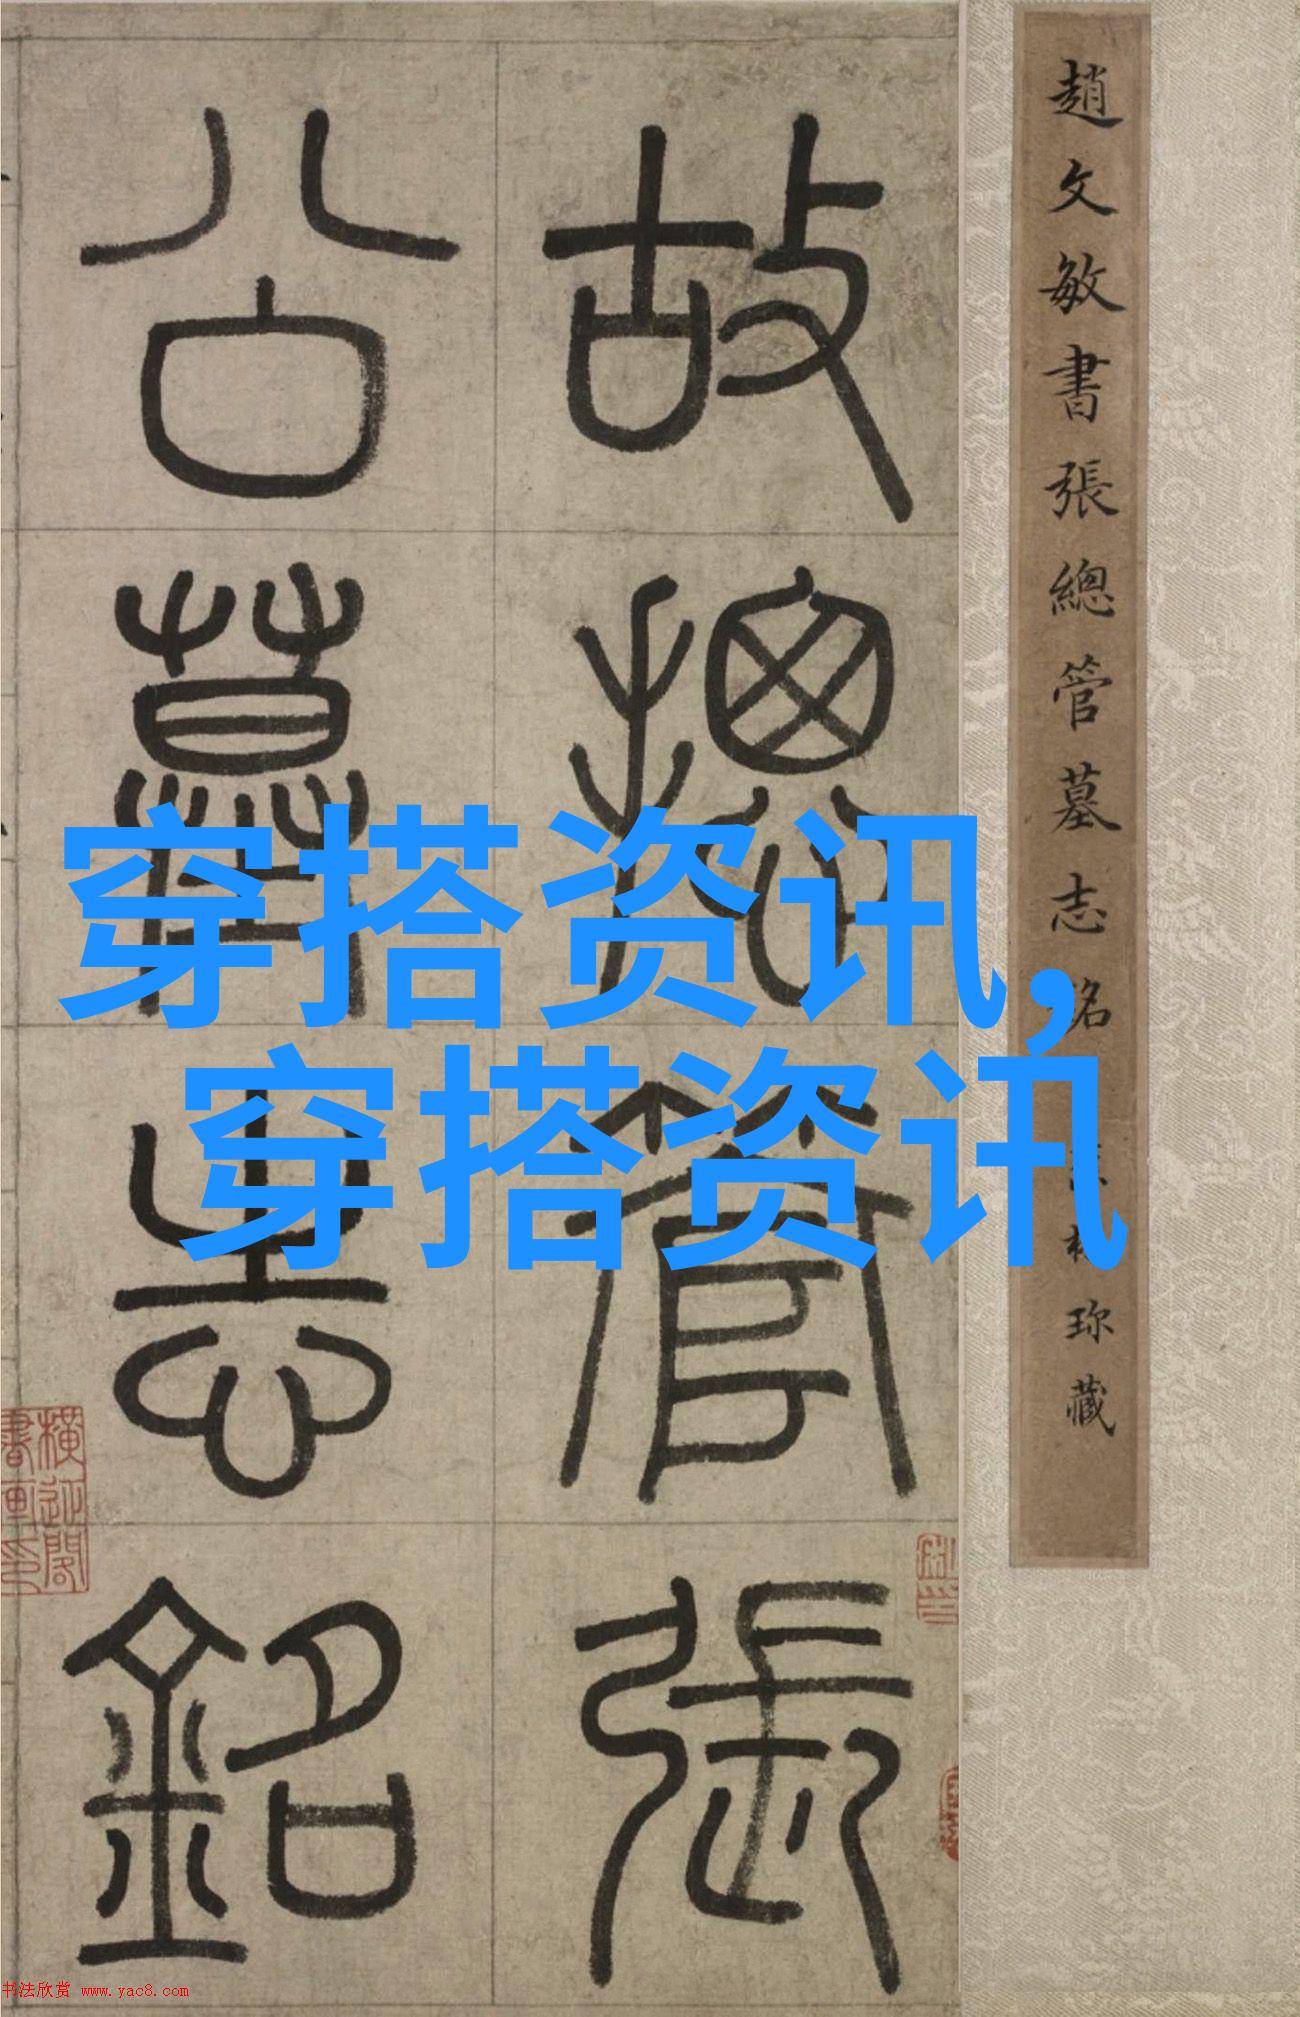 趙文敏書張總管墓志銘
林珎藏
故摠管張
公墓志銘
穿搭资讯,
穿搭资讯
书法欣赏 www.yac8.com